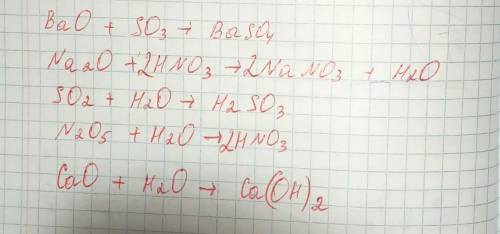 BaO + SO3 → BaSO4
Na2O + 2HNO3 → 2NaNO3 + H2O
SO2 + H2O → H2SO3
N2O5 + H2O → 2HNO3
CaO + H2O → Ca(OH)2